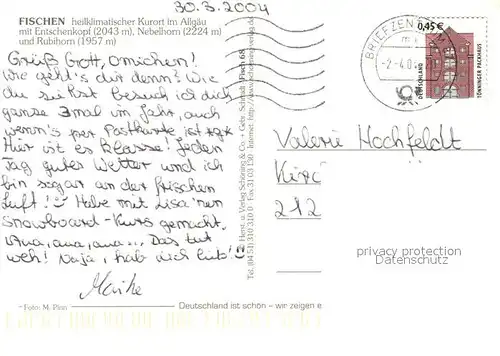 30.3.2004
FISCHEN heilklimatischer Kurort im Allgäu
mit Entschenkopf (2043 m), Nebelhorn (2224 m)
und Rubihorn (1957 m)
Grüß Gott, Omichen!
Wie geht's dir denn? Wie
du siehst besuch ich dich
ganze 3mal im Jahr, auch
wenn's per Postkarte ist *g*
Hier ist es Klasse! Jeden
Tag gutes Wetter und ich
bin sogar an der frischen
Luft! Habe mit Lisa 'nen
Snowboard-Kurs gemacht.
Aua, aua, aua... Das tut
weh! Naja, hab dich lieb!
Maike
Foto: M. Plon
Deutschland ist schön – wir zeigen e
Tel. (04 51) 310 310 Fax 31 03 130 Internet http
BRIEFZENTRUM
-2.-4.04
0,45 €
DEUTSCHLAND
TÖNNINGER PACKHAUS
Valerie Hochfeldt
Kirc
212
privacy protection
Datenschutz